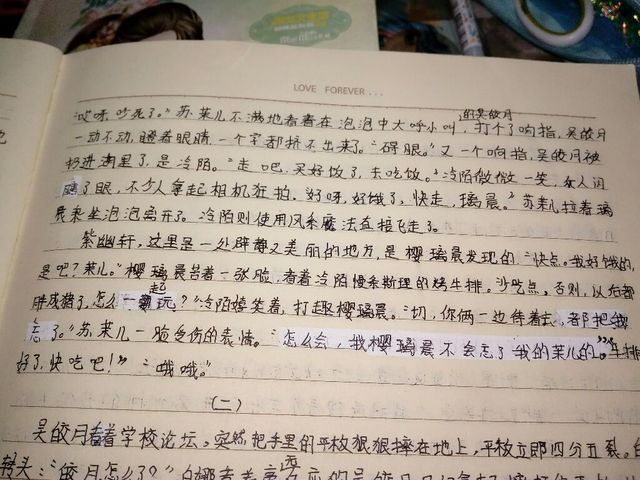 LOVE FOREVER...
的吴皎月
"哎呀,吵死了。"苏茉儿不满地看着在泡泡中大呼小叫,打个了响指,吴皎月
一动不动,瞪着眼睛,一个字都挤不出来了。"碍眼。"又一个响指,吴皎月被
扔进湖里了,是冷陌。"走吧,买好饭了,去吃饭。"冷陌微微一笑,众人闪
瞎了眼,不少人拿起相机狂拍。"好呀,好饿了,快走,璃晨。"苏茉儿拉着璃
晨乘坐泡泡离开了。冷陌则使用风系魔法直接飞走了。
紫幽轩,这里是一处僻静又美丽的地方,是樱璃晨发现的。"快点。我好饿的,
是吧?茉儿。"樱璃晨苦着一张脸,看着冷陌慢条斯理的烤牛排。"少吃点。否则,以后都
胖成猪了,怎么一起玩?"冷陌嬉笑着,打趣樱璃晨。"切,你俩一边待着去,都把我
忘了。"苏茉儿一脸受伤的表情。"怎么会,我樱璃晨不会忘了我的茉儿的。""牛排
好了,快吃吧!""哦哦。"
(二)
吴皎月看着学校论坛,突然把手里的平板狠狠摔在地上,平板立即四分五裂。
转头:"皎月怎么了?"